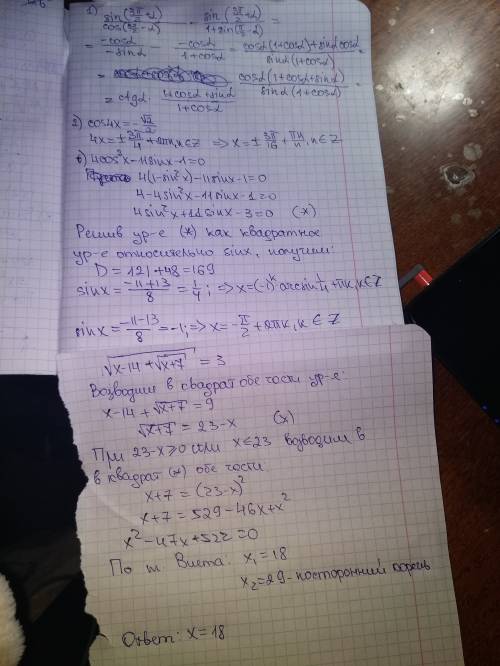 1) sin(3π/2+α)/cos(3π/2-α) - sin(3π/2+α)/1+sin(π/2-α) =
= -cosα/-sinα - -cosα/1+cosα = cosα(1+cosα)+sinα cosα/sinα(1+cosα) =
= cosα(1+cosα+sinα)/sinα(1+cosα) =
= ctgα · 1+cosα+sinα/1+cosα
2) cos4x = -√2/2
4x = ± 3π/4 + 2πn, n∈Z => x = ± 3π/16 + πn/2, n∈Z
4cos²x-11sinx-1=0
4(1-sin²x)-11sinx-1=0
4-4sin²x-11sinx-1=0
4sin²x+11sinx-3=0 (*)
Решив ур-е (*) как квадратное
ур-е относительно sinx, получим:
D = 121+48=169
sinx = -11+13/8 = 1/4; => x=(-1)^k arcsin 1/4 + πk, k∈Z
sinx = -11-13/8 = -1; => x = -π/2 + 2πk, k∈Z
√(x-14+√(x+7)) = 3
Возводим в квадрат обе части ур-е:
x-14+√(x+7) = 9
√(x+7) = 23-x (*)
При 23-x≥0 или x≤23 возводим в
в квадрат (*) обе части
x+7 = (23-x)²
x+7 = 529-46x+x²
x²-47x+522=0
По т. Виета: x₁=18
x₂=29-посторонний корень
Ответ: x=18